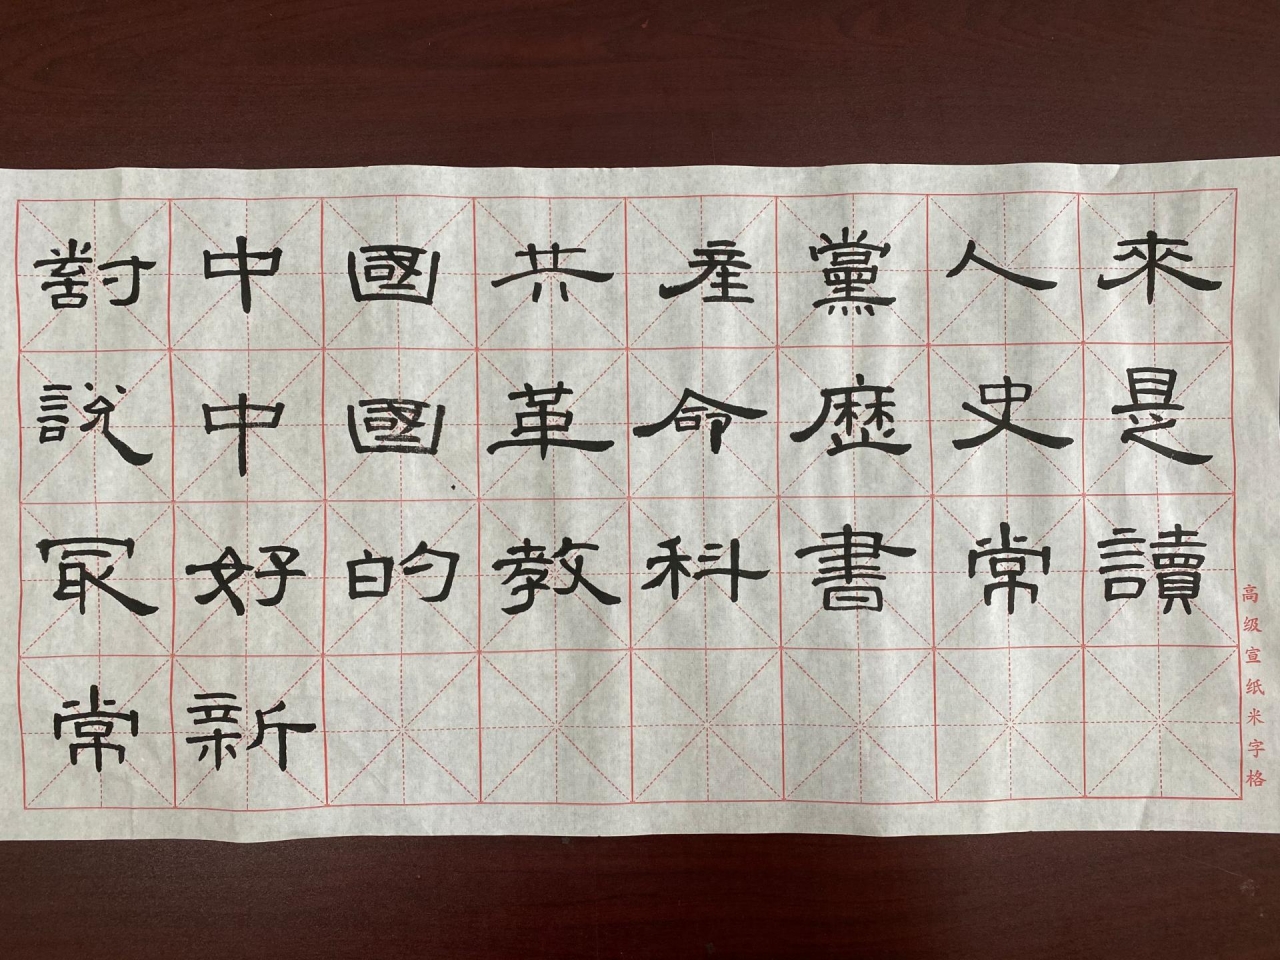 對中國共產黨人來
説中國革命歷史是
冣好的教科書常讀
常新
高级宣纸米字格